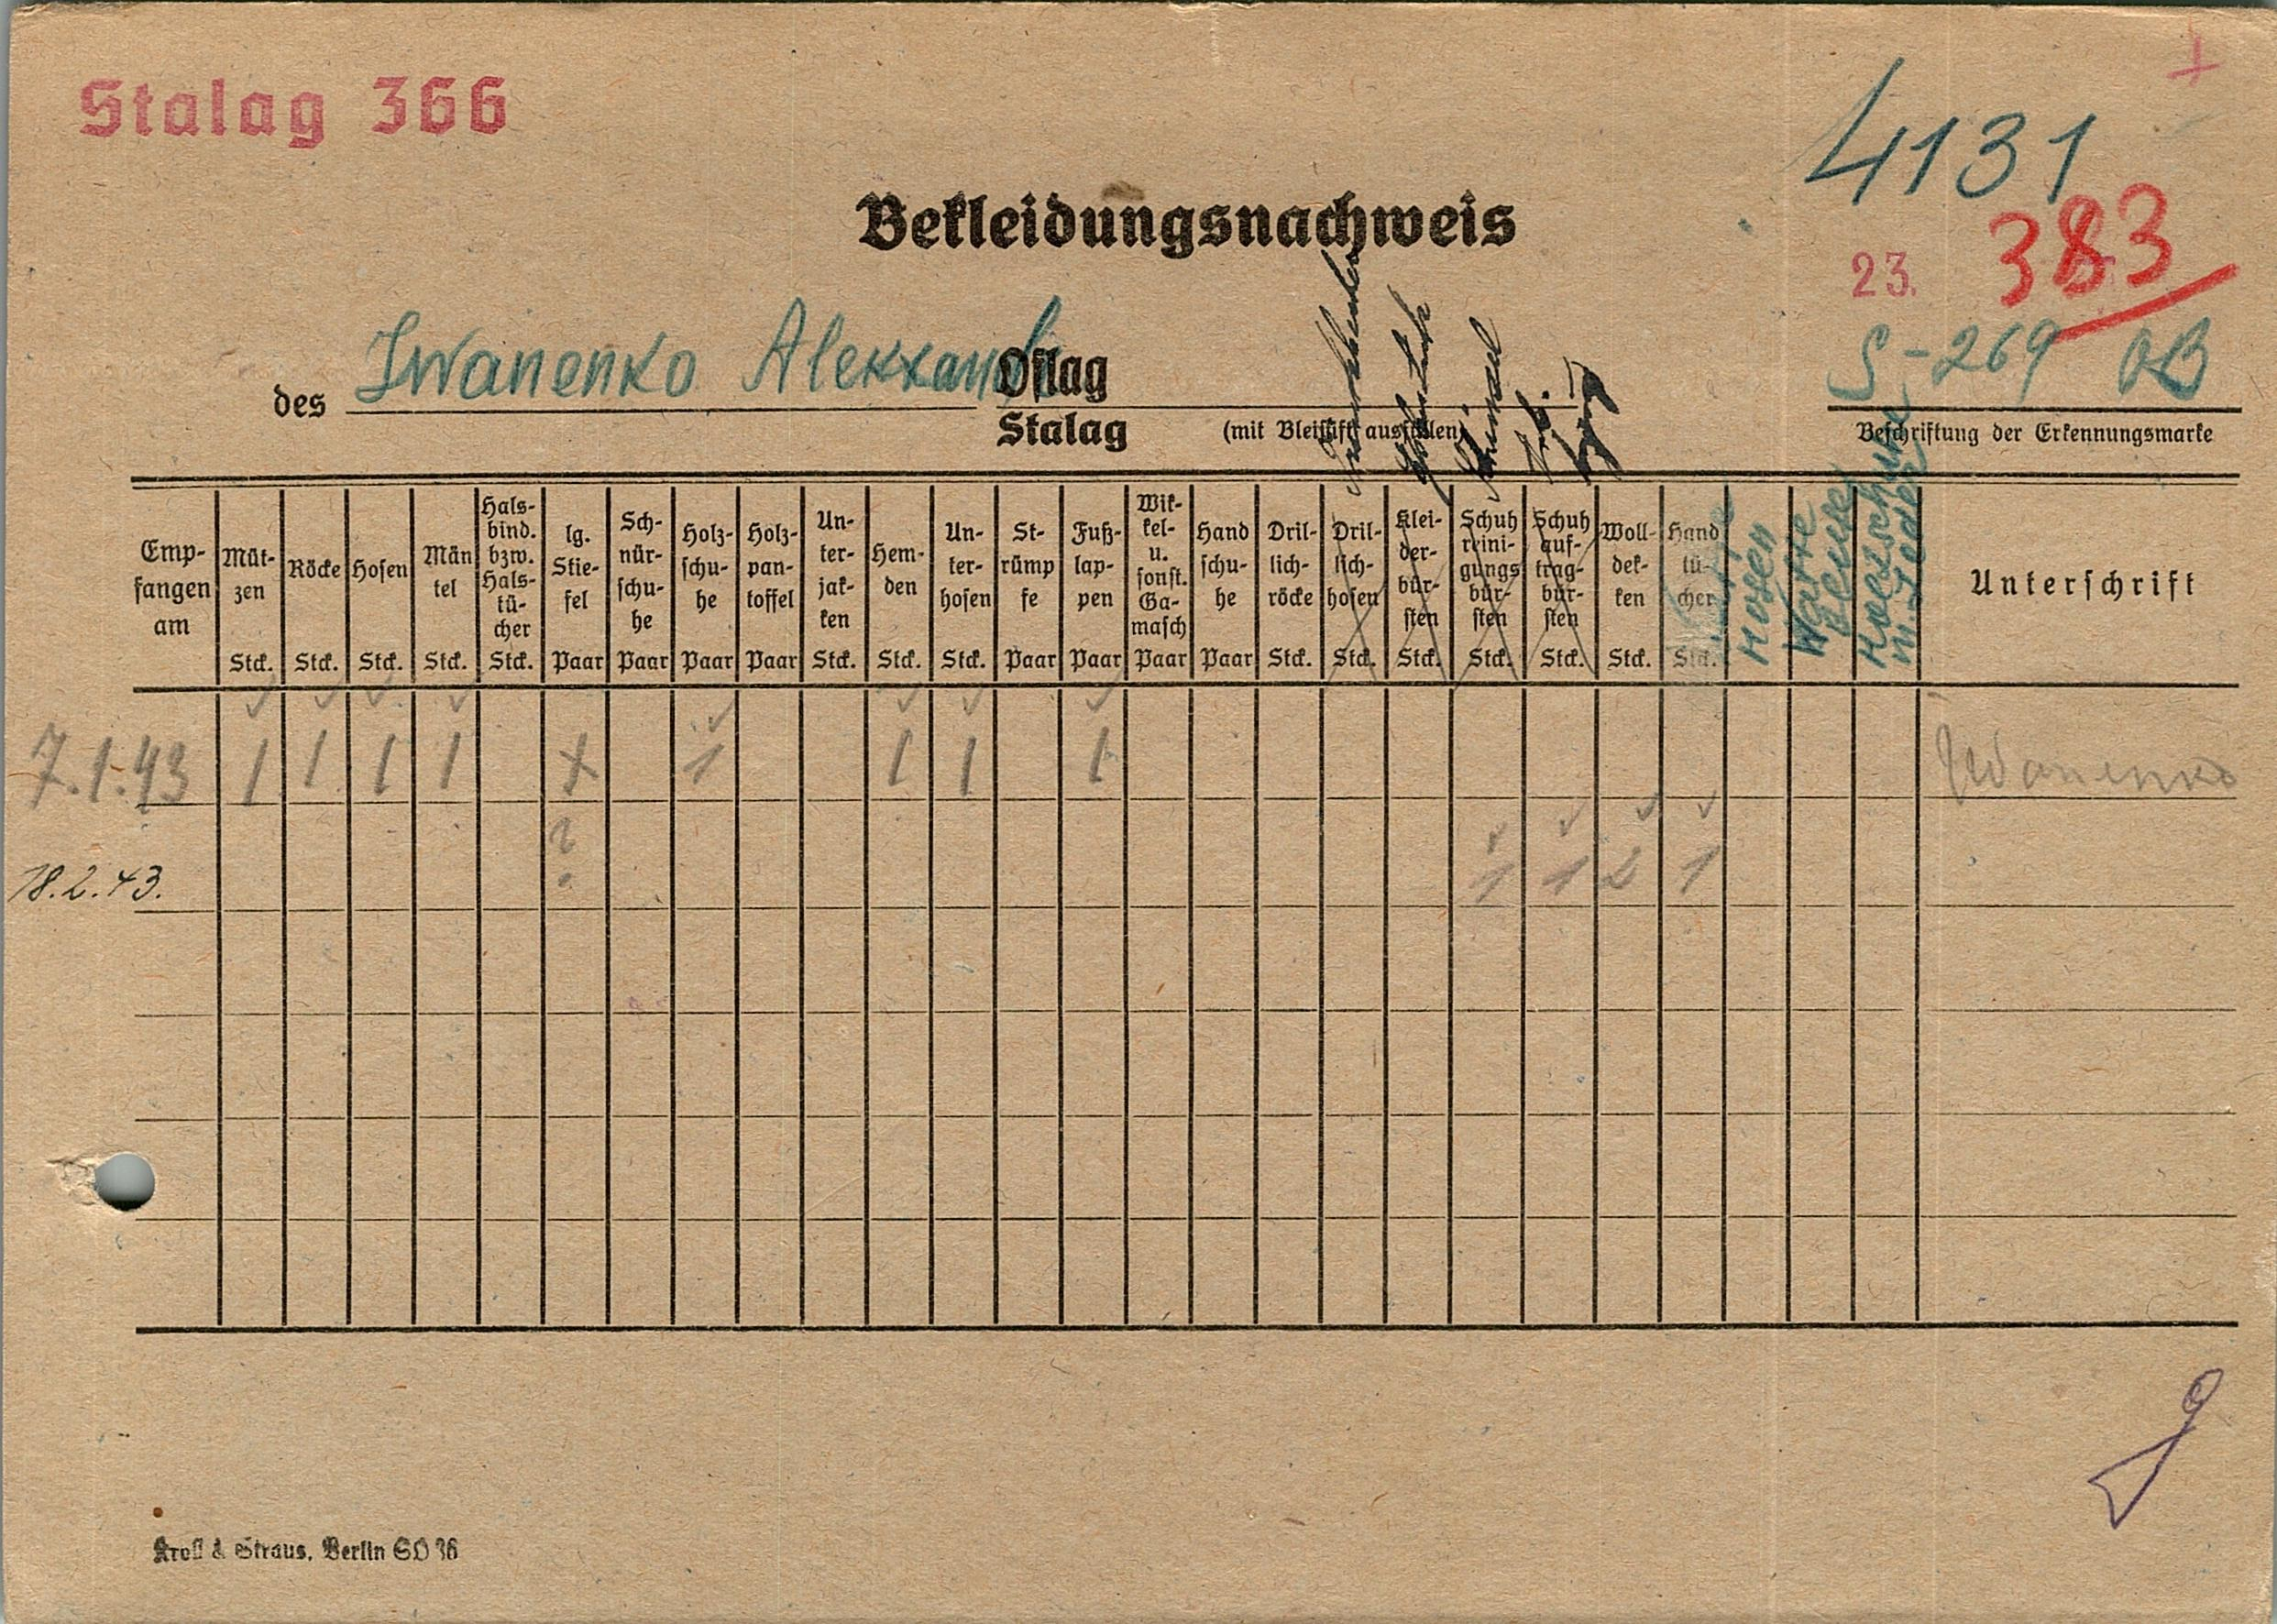 Stalag 366
4131
Bekleidungsnachweis
23. 383
des Iwanenko Alexxand Oflag
Stalag
(mit Bleistift ausfüllen)
S-269 OB
Beschriftung der Erkennungsmarke
Emp-fangen am
Müt-zen Stck.
Röcke Stck.
Hosen Stck.
Män tel Stck.
Hals-bind. bzw. Hals-tü-cher Stck.
lg. Stie-fel Paar
Sch-nür-schu-he Paar
Holz-schu-he Paar
Holz-pan-toffel Paar
Un-ter-jak-ken Stck.
Hem-den Stck.
Un-ter-hosen Stck.
St-rümp fe Paar
Fuß-lap-pen Paar
Wik-kel-u. sonst. Ga-masch Paar
Hand schu-he Paar
Dril-lich-röcke Stck.
Dril-lich-hosen Stck.
Klei-der-bür-sten Stck.
Schuh reini-gungs bür-sten Stck.
Schuh auf-trag-bür-sten Stck.
Woll-dek-ken Stck.
Hand tü-cher Stck.
Hosen
Watte
Holzschuhe
m. Leder
Unterschrift
7.1.43 1 1 1 1 1 1 1 1 Iwanenko
?
18.2.43. 1 1 2 1
Kroll & Straus, Berlin SO 36